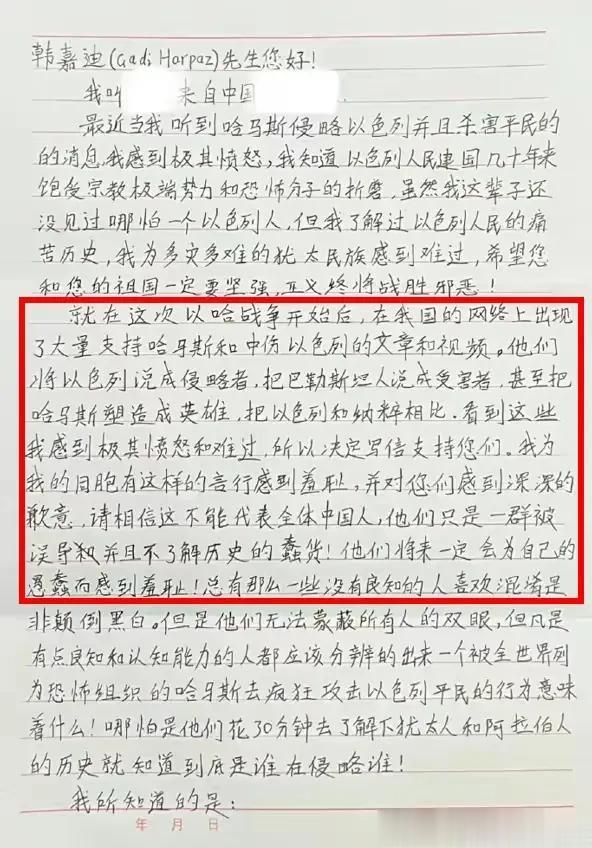 韩嘉迪(Gadi Harpaz)先生您好!
我叫 来自中国 .
最近当我听到哈马斯侵略以色列并且杀害平民的
的消息,我感到极其愤怒,我知道以色列人民建国几十年来
饱受宗教极端势力和恐怖分子的折磨,虽然我这辈子还
没见过哪怕一个以色列人,但我了解过以色列人民的痛
苦历史,我为多灾多难的犹太民族感到难过,希望您
和您的祖国一定要坚强,正义终将战胜邪恶!
就在这次以哈战争开始后,在我国的网络上出现
了大量支持哈马斯和中伤以色列的文章和视频。他们
将以色列说成侵略者,把巴勒斯坦人说成受害者,甚至把
哈马斯塑造成英雄,把以色列和纳粹相比.看到这些
我感到极其愤怒和难过,所以决定写信支持您们。我为
我的同胞有这样的言行感到羞耻,并对您们感到深深的
歉意,请相信这不能代表全体中国人,他们只是一群被
误导和并且不了解历史的蠢货!他们将来一定会为自己的
愚蠢而感到羞耻!总有那么一些没有良知的人喜欢混淆是
非颠倒黑白。但是他们无法蒙蔽所有人的双眼,但凡是
有点良知和认知能力的人都应该分辨的出来一个被全世界列
为恐怖组织的哈马斯去疯狂攻击以色列平民的行为意味
着什么!哪怕是他们花30分钟去了解下犹太人和阿拉伯人
的历史就知道到底是谁在侵略谁!
我所知道的是:
年 月 日